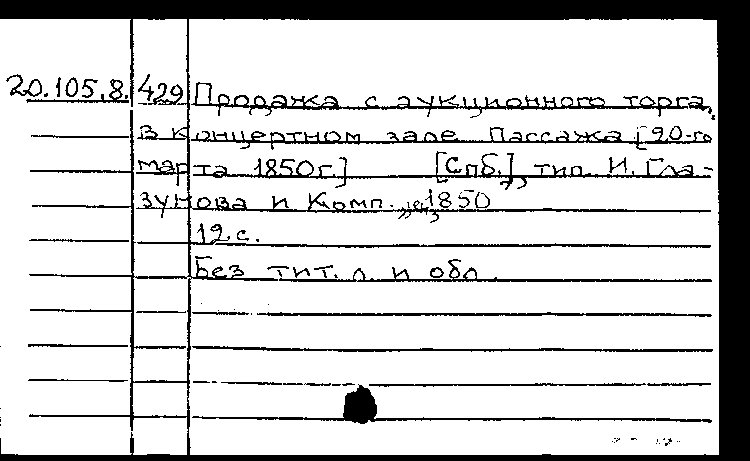 20.105.8.429 Продажа с аукционного торга,
в концертном зале Пассажа [20-го
марта 1850г.] [Спб.], тип. И. Гла-
зунова и Комп., 1850
12 с.
Без тит. л. и обл.